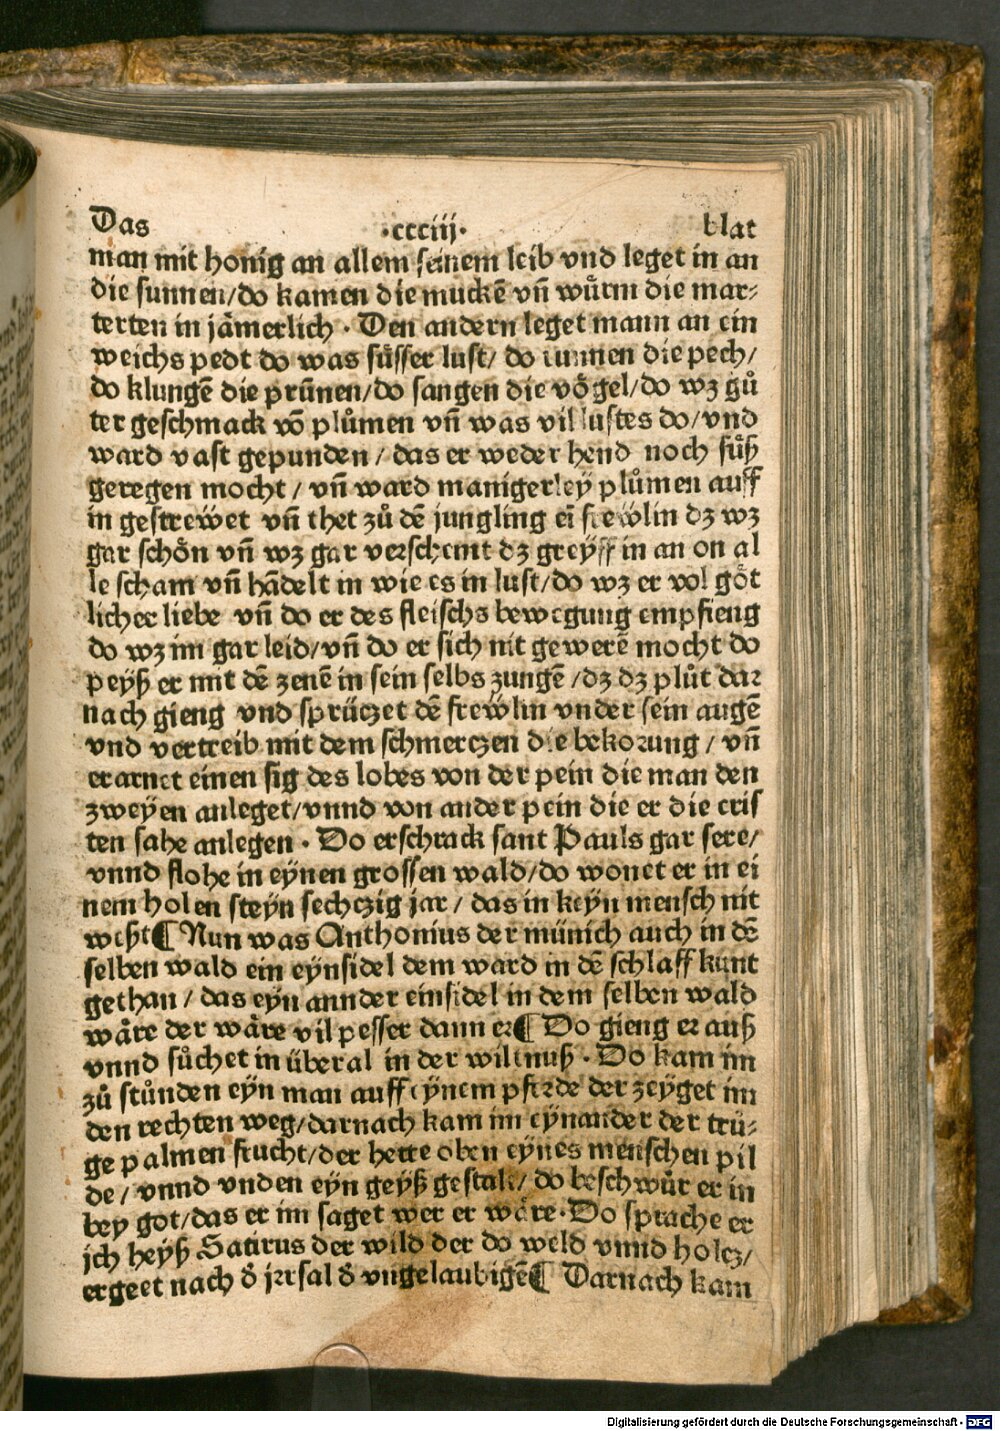 Das ·ccciij· blat
man mit honig an allem seinem leib vnd leget in an
die sunnen/do kamen die muckē vn̄ wuͤrm die mar⸗
terten in jaͤmerlich · Den andern leget mann an ein
weichs pedt do was suͤsser lust/ do runnen die pech/
do klungē die prūnen/do sangen die voͤgel/do wz guͦ
ter geschmack vō pluͦmen vn̄ was vil lustes do/vnd
ward vast gepunden / das er weder hend noch fuͤß
geregen mocht / vn̄ ward manigerley pluͦmen auff
in gestrewet vn̄ thet zuͦ dē jungling ei frewlin dz wz
gar schoͤn vn̄ wz gar verschemt dz greyff in an on al
le scham vn̄ hādelt in wie es in lust/do wz er vol goͤt
licher liebe vn̄ do er des fleischs bewegung empfieng
do wz im gar leid/vn̄ do er sich nit gewerē mocht do
peyß er mit dē zenē in sein selbs zungē /dz dz pluͦt dar
nach gieng vnd spruͤczet dē frewlin vnder sein augē
vnd vertreib mit dem schmerczen die bekorung / vn̄
erarnet einen sig des lobes von der pein die man den
zweyen anleget/vnnd von ander pein die er die cris
ten sahe anlegen · Do erschrack sant Pauls gar sere/
vnnd flohe in eynen grossen wald/do wonet er in ei
nem holen steyn sechczig jar / das in keyn mensch nit
weßt¶ Nun was Anthonius der münich auch in dē
selben wald ein eynsidel dem ward in dē schlaff kunt
gethan / das eyn annder einsidel in dem selben wald
waͤre der waͤre vil pesser dann er¶ Do gieng er auß
vnnd suͦchet in überal in der wiltnuß · Do kam im
zuͦ stuͦnden eyn man auff eynem pferde der zeyget im
den rechten weg/darnach kam im eynander der truͦ⸗
ge palmen frucht/der hette oben eynes menschen pil
de/ vnnd vnden eyn geyß gestalt/ do beschwuͦr er in
bey got/das er im saget wer er waͤre·Do sprache er
jch heyß Satirus der wild der do weld vnnd holcz/
ergeet nach d̄ jrrsal d̄ vngelaubigē¶ Darnach kam
Digitalisierung gefördert durch die Deutsche Forschungsgemeinschaft - DFG